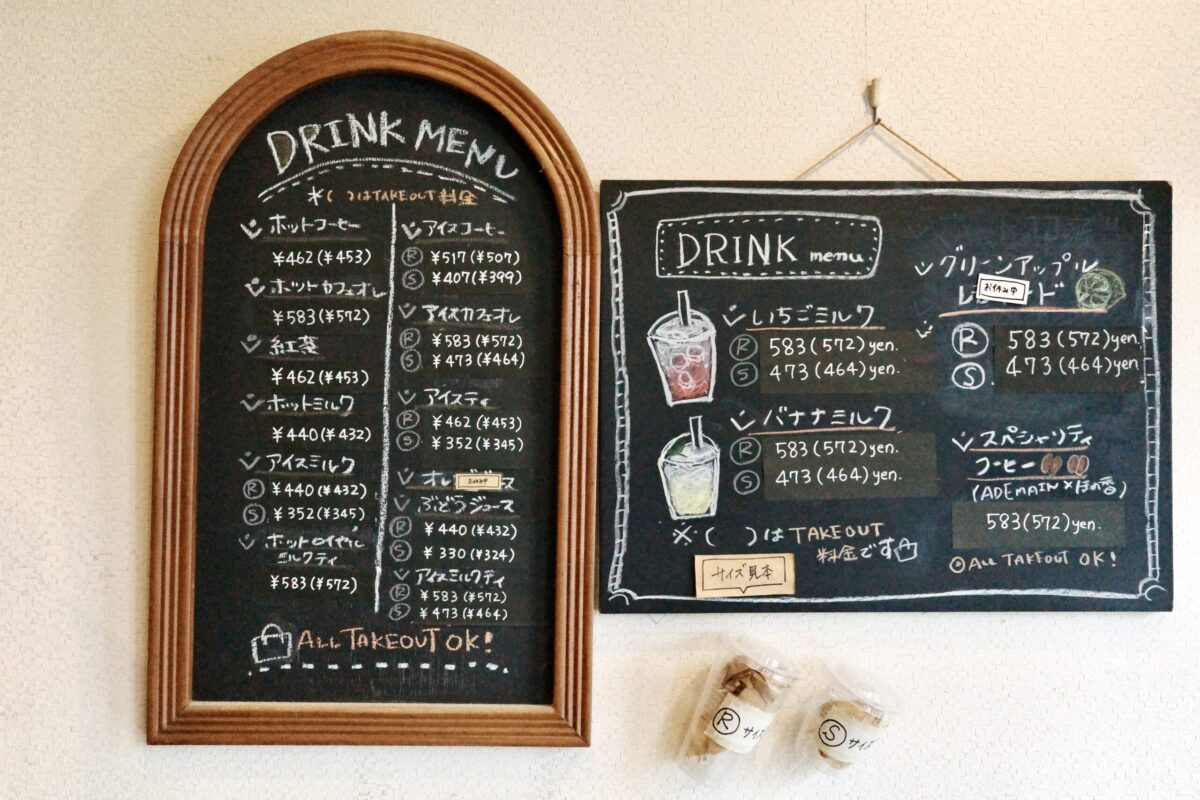 DRINK MENU
*( )はTAKEOUT料金
ホットコーヒー
¥462(¥453)
ホットカフェオレ
¥583(¥572)
紅茶
¥462(¥453)
ホットミルク
¥440(¥432)
アイスミルク
Ⓡ ¥440(¥432)
Ⓢ ¥352(¥345)
ホットロイヤル
ミルクティ
¥583(¥572)
アイスコーヒー
Ⓡ ¥517(¥507)
Ⓢ ¥407(¥399)
アイスカフェオレ
Ⓡ ¥583(¥572)
Ⓢ ¥473(¥464)
アイスティ
Ⓡ ¥462(¥453)
Ⓢ ¥352(¥345)
オレ お休み中 ス
ぶどうジュース
Ⓡ ¥440(¥432)
Ⓢ ¥330(¥324)
アイスミルクティ
Ⓡ ¥583(¥572)
Ⓢ ¥473(¥464)
ALL TAKEOUT OK!
DRINK menu
いちごミルク
Ⓡ 583(572)yen.
Ⓢ 473(464)yen.
バナナミルク
Ⓡ 583(572)yen.
Ⓢ 473(464)yen.
※( )はTAKEOUT
料金です
サイズ見本
グリーンアップル
レ お休み中 ド
Ⓡ 583(572)yen.
Ⓢ 473(464)yen
スペシャリティ
コーヒー
(ADEMAIN×ほの香)
583(572)yen.
◎ALL TAKEOUT OK!
Ⓡ サイズ
Ⓢ サイズ